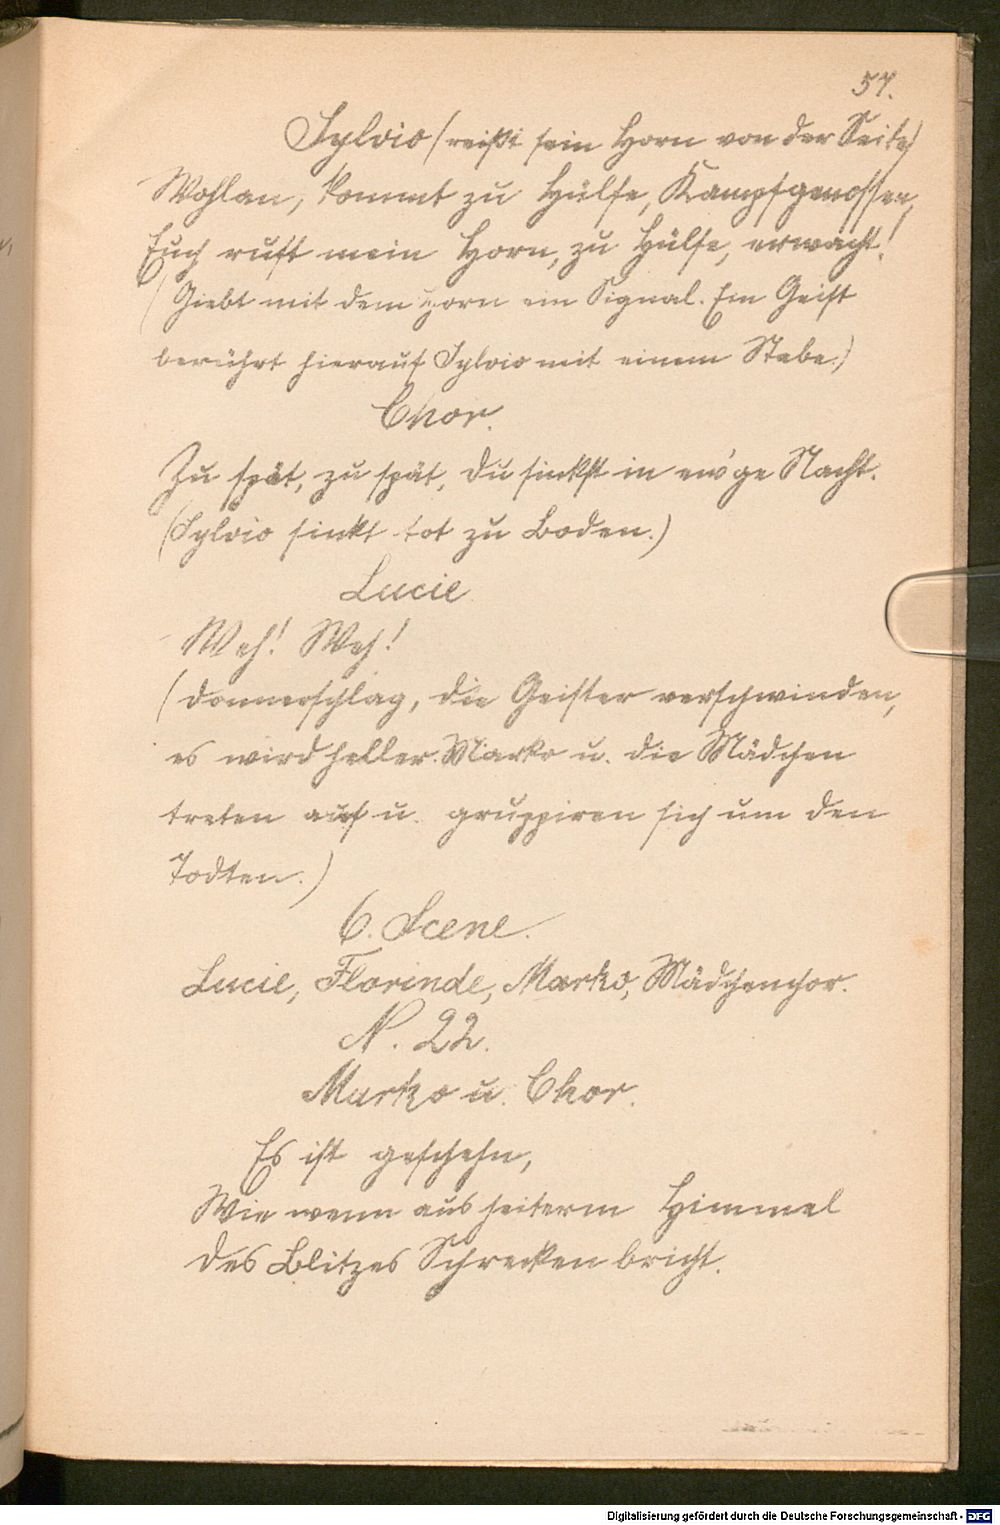 57.
Sylvio (reißt sein Horn von der Seite)
Wohlan, kommt zu Hülfe, Kampfgenossen,
Euch ruft mein Horn, zu Hülfe, erwacht!
(Giebt mit dem Horn ein Signal. Ein Geist
berührt hierauf Sylvio mit einem Stabe.)
Chor.
Zu spät, zu spät, du sinkst in ew'ge Nacht.
(Sylvio sinkt tot zu Boden.)
Lucie
Weh! Weh!
(Donnerschlag, die Geister verschwinden,
es wird heller. Marko u. die Mädchen
treten auf u. gruppiren sich um den
Todten.)
6. Scene.
Lucie, Florinde, Marko, Mädchenchor.
N. 22.
Marko u. Chor.
Es ist geschehn,
Wie wenn aus heiterm Himmel
Des Blitzes Schrecken bricht.
Digitalisierung gefördert durch die Deutsche Forschungsgemeinschaft - DFG